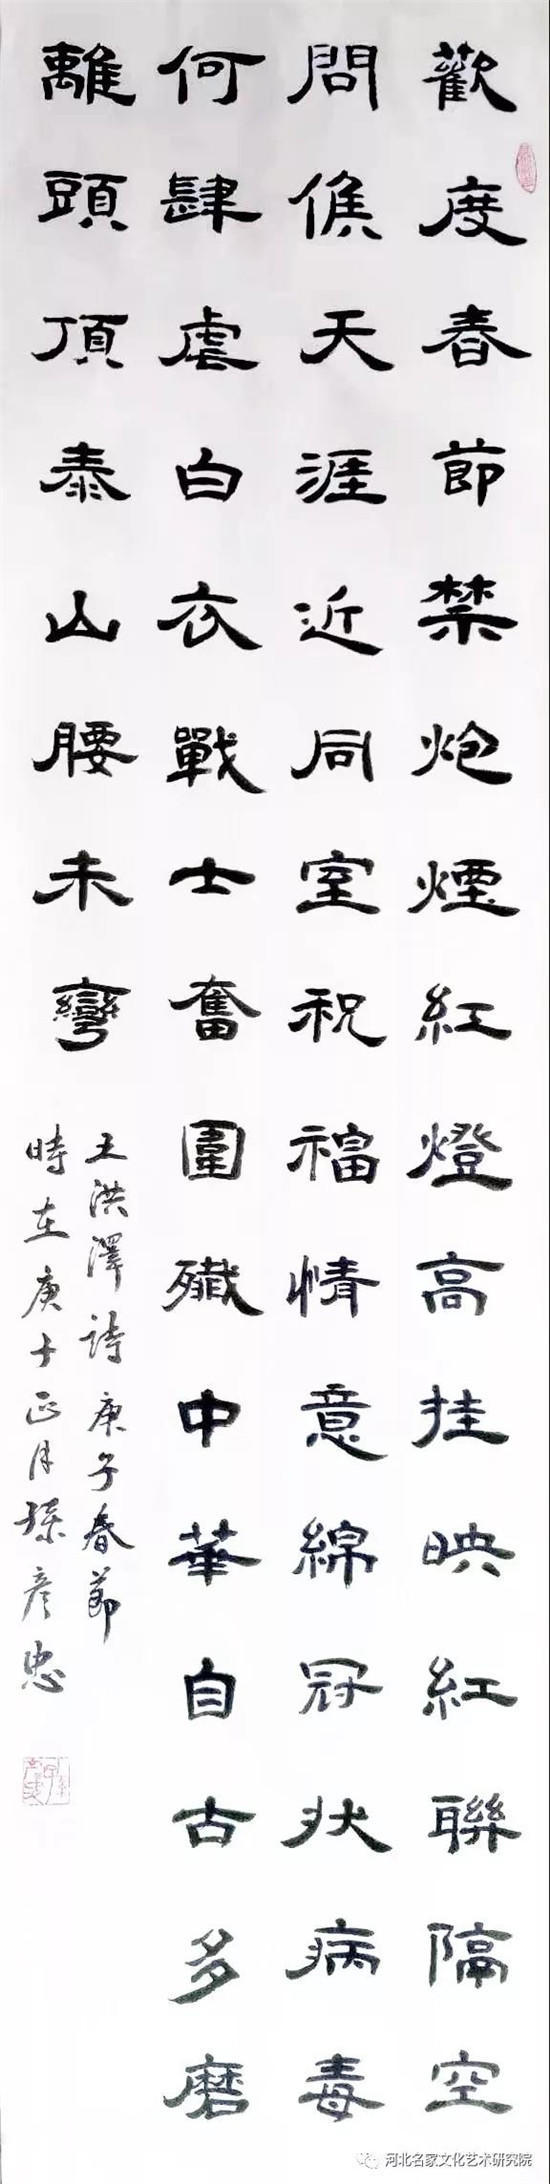 歡度春節禁炮煙紅燈高挂映紅聯隔空
問候天涯近同室祝福情意綿冠狀病毒
何肆虐白衣戰士奮圍殲中華自古多磨
離頭頂泰山腰未彎
王洪澤詩庚子春節
時在庚子正月 彦忠
河北名家文化艺术研究院